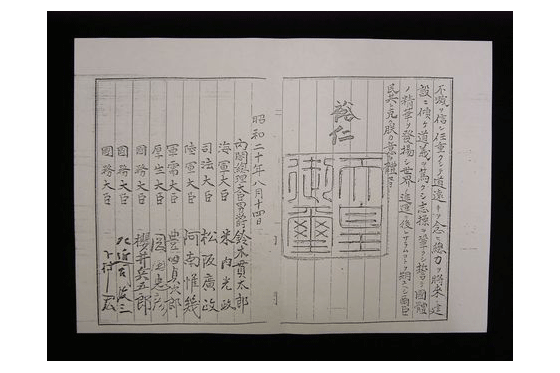 不滅ヲ信シ任重クシテ道遠キヲ念ヒ總力ヲ將來ノ建
設ニ傾ケ道義ヲ篤クシ志操ヲ鞏クシ誓テ國體
ノ精華ヲ發揚シ世界ノ進運ニ後レサラムコトヲ期スヘシ爾臣
民其レ克ク朕カ意ヲ體セヨ
裕仁
天皇
御璽
昭和二十年八月十四日
内閣總理大臣男爵 鈴木貫太郎
海軍大臣 米内光政
司法大臣 松阪廣政
陸軍大臣 阿南惟幾
軍需大臣 豊田貞次郎
厚生大臣 岡田忠彦
國務大臣 櫻井兵五郎
國務大臣 左近司政三
國務大臣 下村宏